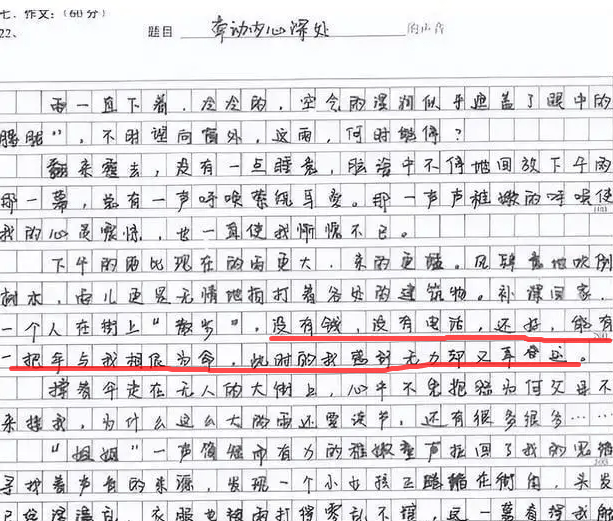 七. 作文:(60分)
22、 题目 牵动内心深处 的声音
雨一直下着，冷冷的，空气的湿润似乎遮盖了眼中的
朦胧"，不时望向窗外，这雨，何时能停？
翻来覆去，没有一点睡意，脑海中不停地回放下午的
那一幕，总有一声呼唤萦绕耳旁。那一声声稚嫩的呼唤使
我的心灵震惊，也一直使我惭愧不已。
下午的雨比现在的雨更大，来的更猛。风肆意地吹倒
树木，雨儿更是无情地拍打着各处的建筑物。补课回家，
一个人在街上"散步"，没有钱，没有电话，还好，能有
一把伞与我相依为命，此时的我感到无力却又幸运。
撑着伞走在无人的大街上，心中不免抱怨为何父母不
来接我，为什么这么大的雨还要读书，还有很多很多……
"姐姐"一声 而有力的稚嫩童声拉回了我的思绪
寻找着声音的来源，发现一个小女孩正蜷缩在街角，头发
已经湿漉漉，衣服也被雨打得零乱不堪，这一幕有得我